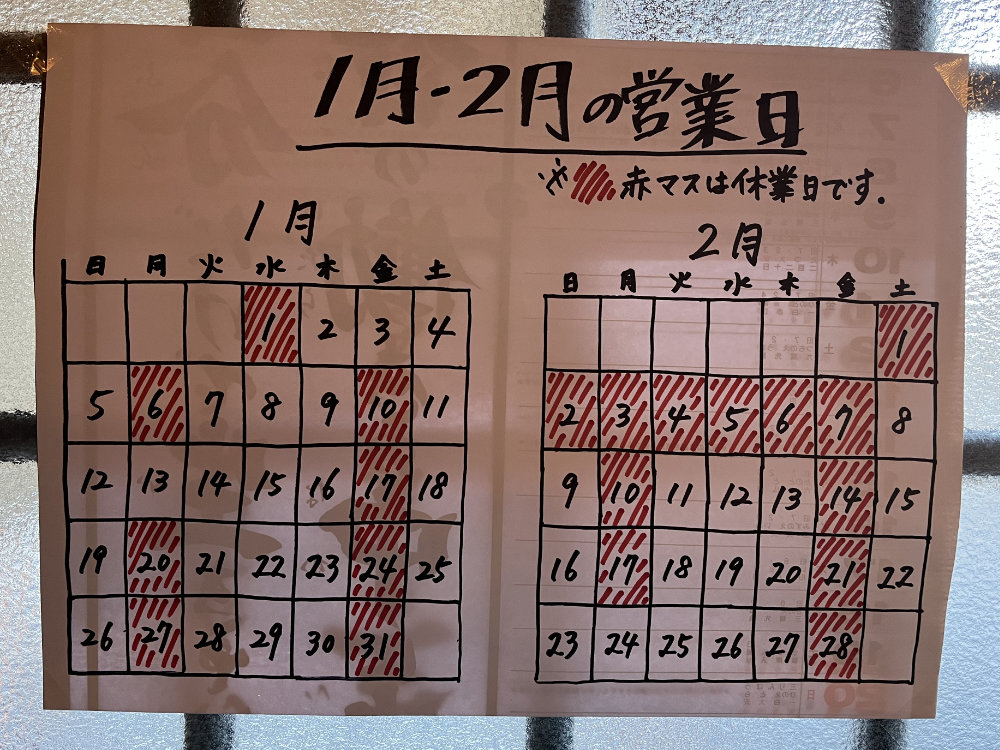 1月-2月の営業日
※ 赤マスは休業日です.
1月
日 月 火 水 木 金 土
1 2 3 4
5 6 7 8 9 10 11
12 13 14 15 16 17 18
19 20 21 22 23 24 25
26 27 28 29 30 31
2月
日 月 火 水 木 金 土
1
2 3 4 5 6 7 8
9 10 11 12 13 14 15
16 17 18 19 20 21 22
23 24 25 26 27 28